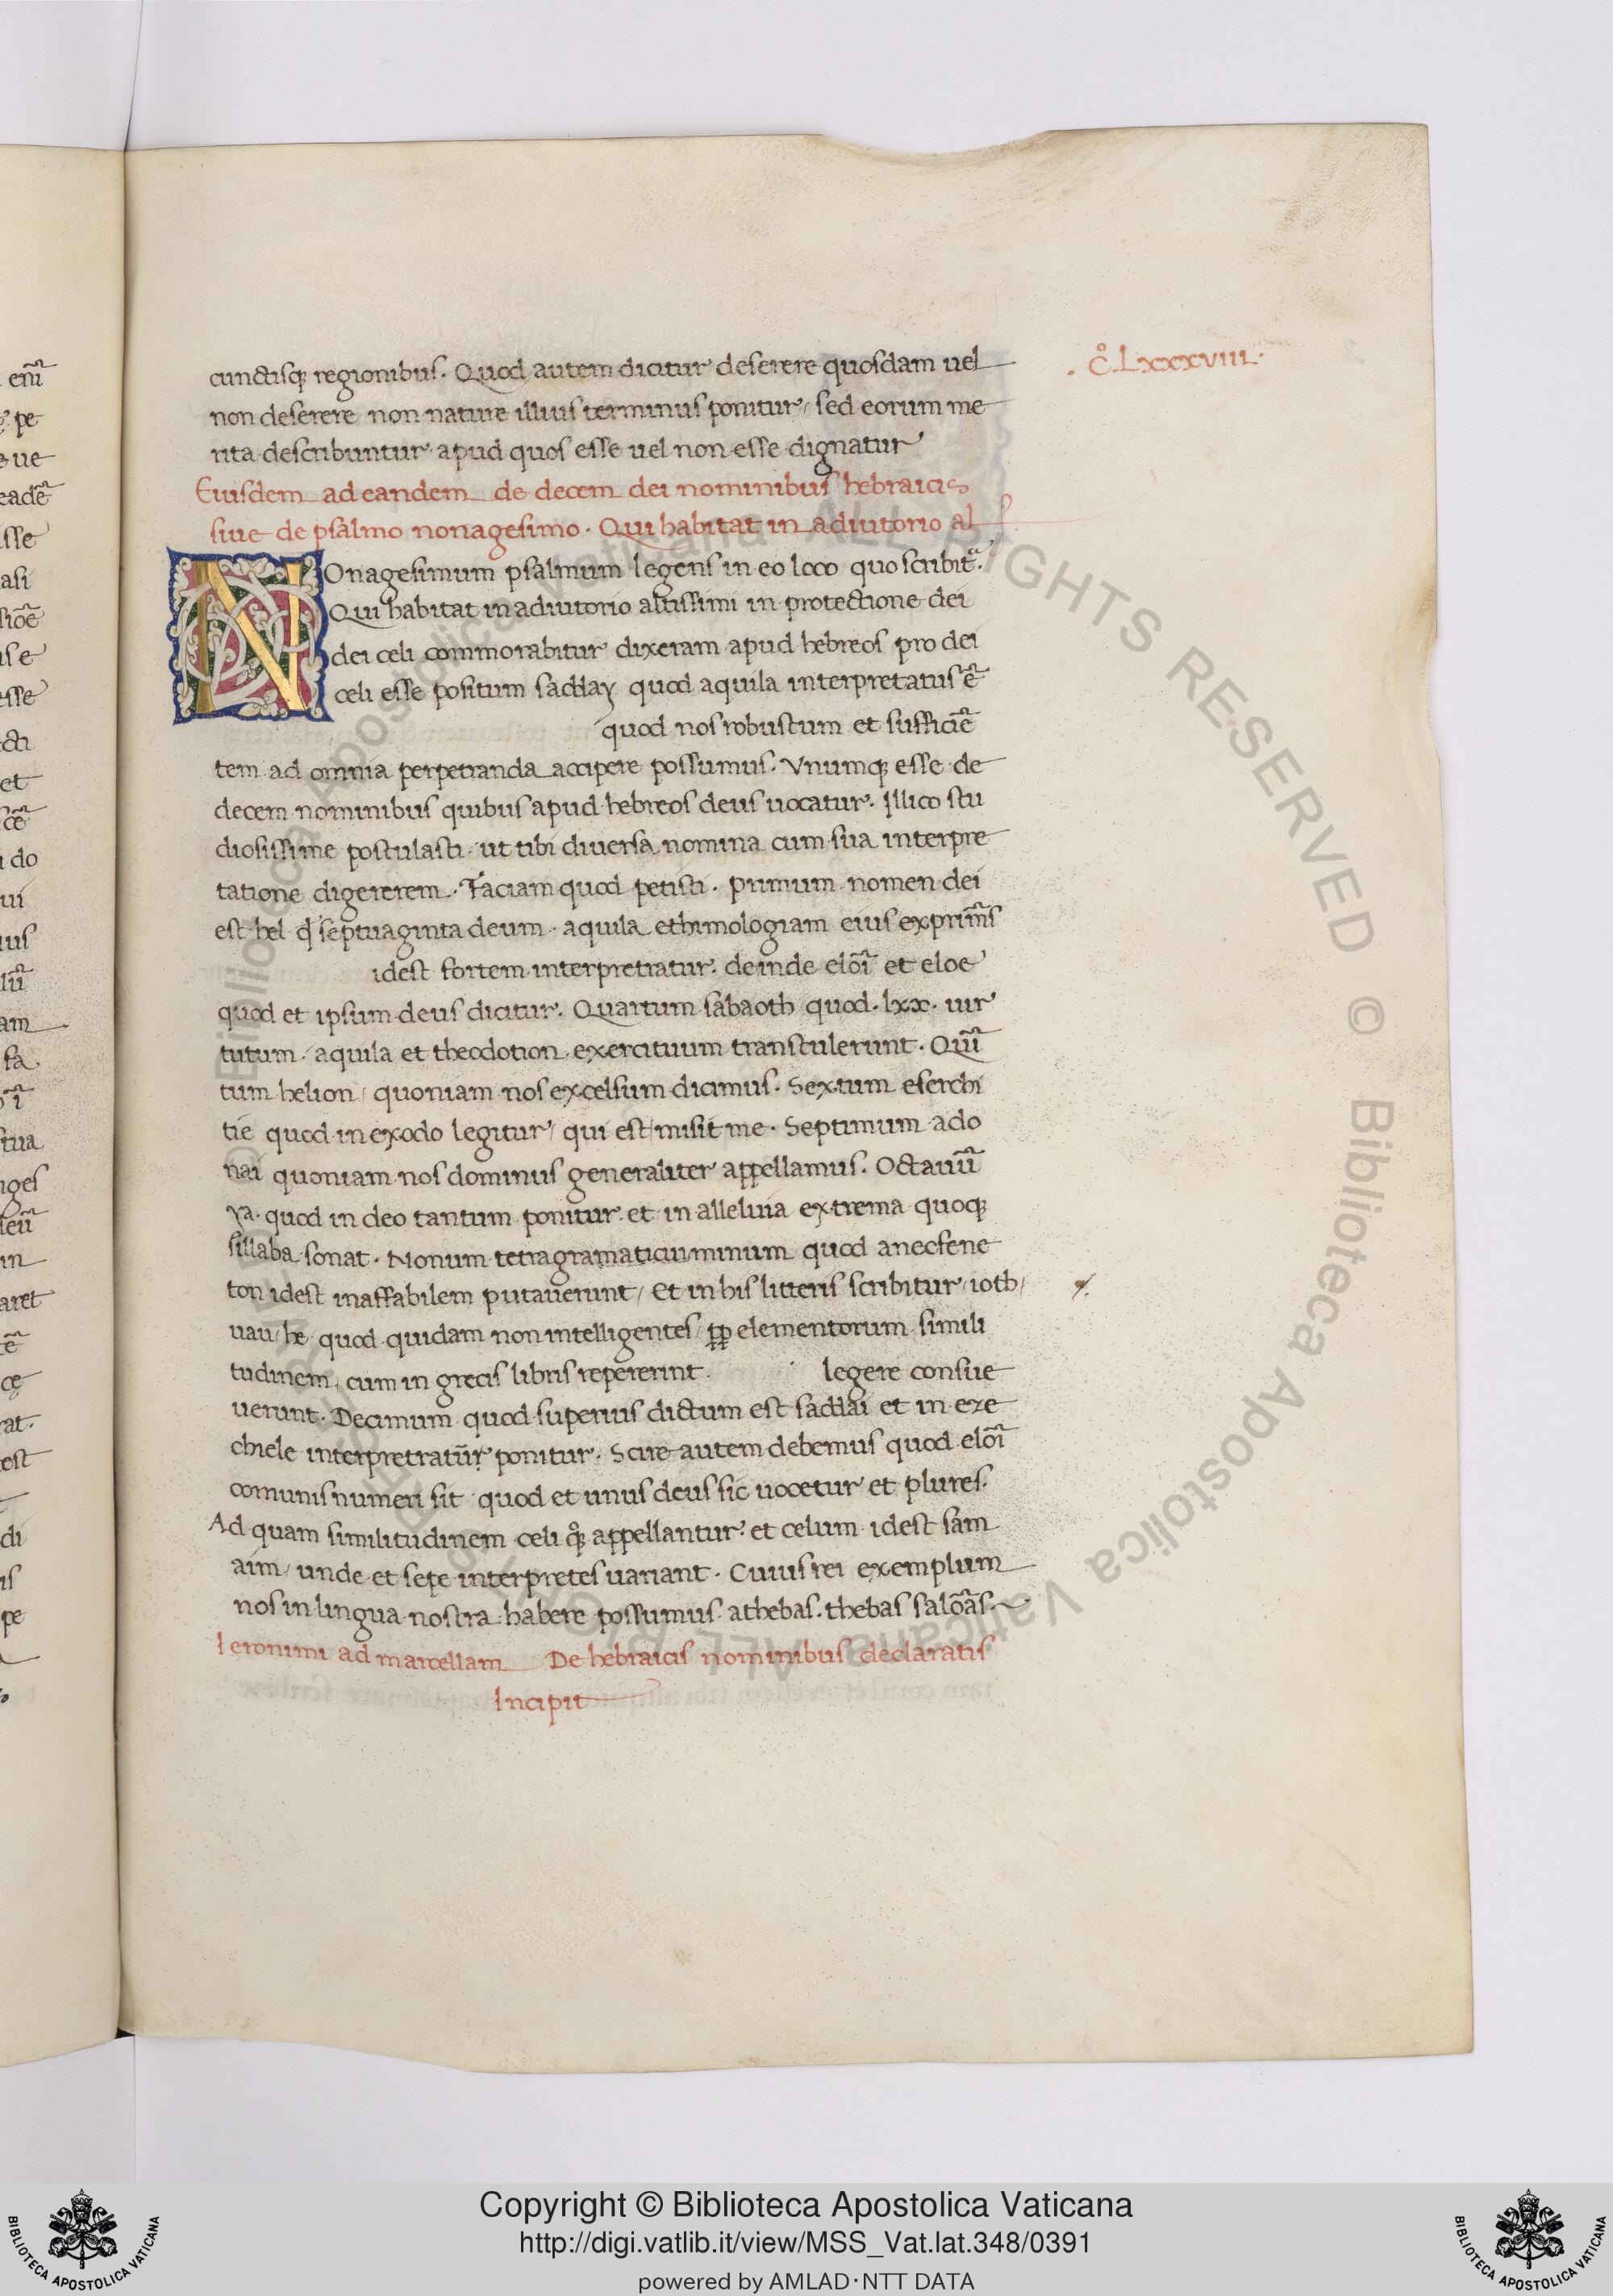 cunctisq; regionibus. Quod autem dicitur deserere quosdam uel
non deserere non nature illius terminus ponitur/ sed eorum me
rita describuntur apud quos esse uel non esse dignatur
Eiusdem ad eandem de decem dei nominibus hebraicis
siue de psalmo nonagesimo. Qui habitat in adiutorio al
NOnagesimum psalmum legens in eo loco quo scribit̃.
Qui habitat in adiutorio altissimi in protectione dei
dei celi commorabitur dixeram apud hebreos pro dei
celi esse positum sadday quod aquila interpretatus ẽ
quod nos robustum et sufficiẽ
tem ad omnia perpetranda accipere possumus. Vnumq; esse de
decem nominibus quibus apud hebreos deus uocatur. Illico stu
diosissime postulasti ut tibi diuersa nomina cum sua interpre
tatione digererem. Faciam quod petisti. primum nomen dei
est hel qđ septuaginta deum. aquila ethimologiam eius exprim̃s
idest fortem interpretratur. deinde eloĩ et eloe
quod et ipsum deus dicitur. Quartum sabaoth quod. lxx. uir
tutum. aquila et theodotion exercituum transtulerunt. Quĩ
tum helion/ quoniam nos excelsum dicimus. Sextum eserchi
tie quod in exodo legitur/ qui est misit me. Septimum ado
nai quoniam nos dominus generaliter appellamus. Octauũ
ya. quod in deo tantum ponitur et in alleluia extrema quoq;
sillaba sonat. Nonum tetragramaticuiminum quod anecfene
ton idest inaffabilem putauerunt/ Et in his litteris scribitur/ ioth/
uau/ he quod quidam non intelligentes/ ꝓp elementorum simili
tudinem, cum in grecis libris repererint. legere consue
uerunt. Decimum quod superius dictum est saddai et in eze
chiele interpretratũr ponitur. Scire autem debemus quod eloĩ
comunis numeri sit quod et unus deus sic uocetur et plures.
Ad quam similitudinem celi qͦꝫ appellantur. et celum idest sam
aim/ unde et sepe interpretes uariant. Cuius rei exemplum
nos in lingua nostra habere possumus athebas. thebas salõãs
Ieronimi ad marcellam De hebraicis nominibus declaratis
Incipit
. c̊. Lxxxviii.
enĩ
pe
ue
eadẽ
sse
asi
siõẽ
us e
esse
cti
et
scẽ
do
ui
ius
lũ
am
sa
stua
nges
seũ
in
aret
ẽ
ce
rat.
est
di
is
pe
© Biblioteca Apostolica Vaticana ALL RIGHTS RESERVED © Biblioteca Apostolica Vaticana ALL RIGHTS RESERVED
Copyright © Biblioteca Apostolica Vaticana
http://digi.vatlib.it/view/MSS_Vat.lat.348/0391
powered by AMLAD·NTT DATA
BIBLIOTECA APOSTOLICA VATICANA
BIBLIOTECA APOSTOLICA VATICANA